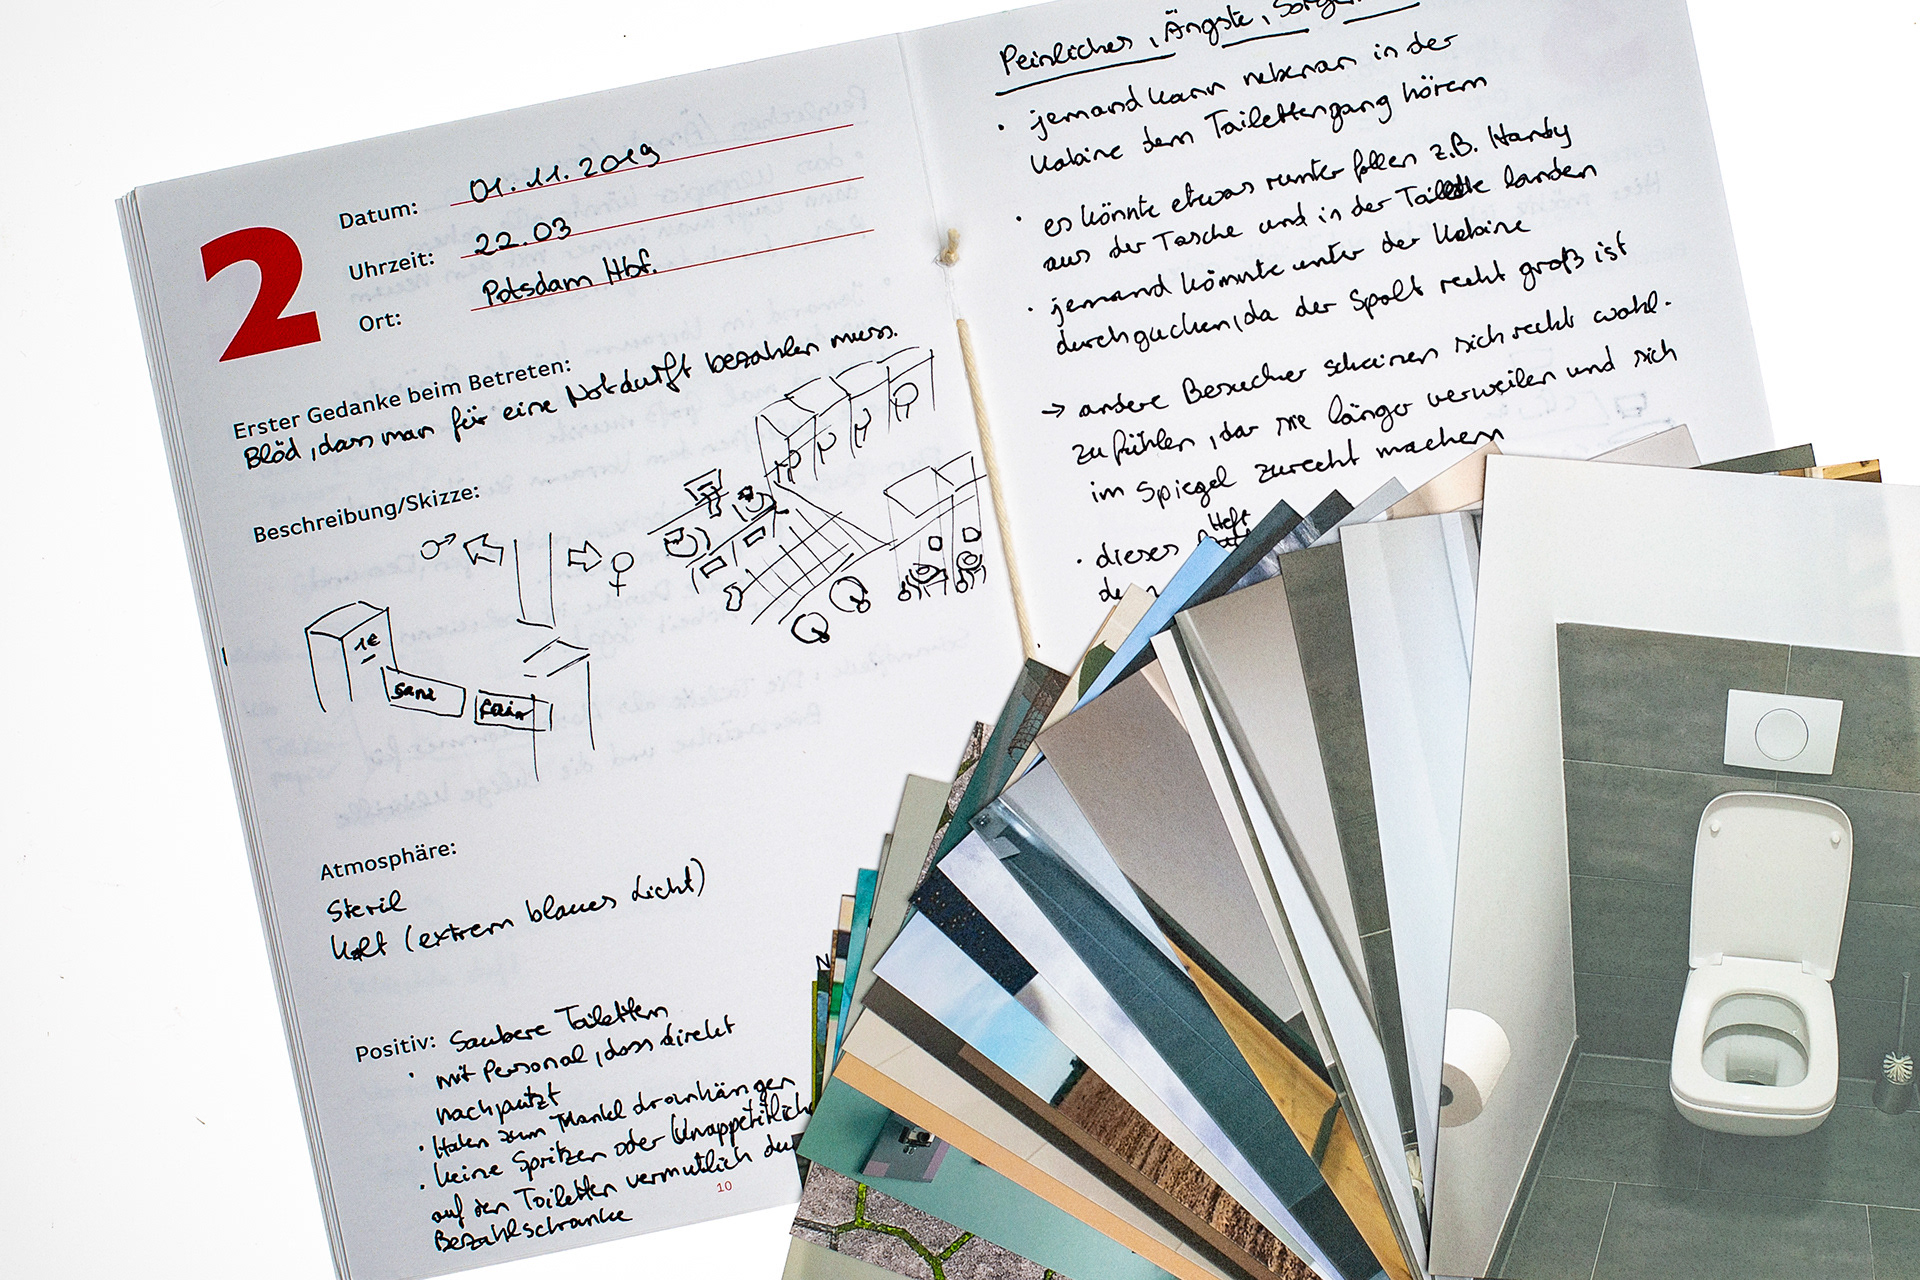 2
Datum: 01.11.2019
Uhrzeit: 22.03
Ort: Potsdam Hbf.
Erster Gedanke beim Betreten:
Blöd, dass man für eine Notdurft bezahlen muss.
Beschreibung/Skizze:
1€
Sani
fair
Atmosphäre:
Steril
kalt (extrem blaues Licht)
Positiv: Saubere Toiletten
· mit Personal, dass direkt
nachputzt
· Haken zum Mantel dranhängen
· keine Spritzen oder Unappetitliche
auf den Toiletten vermutlich
Bezahlschranke
10
Peinliches, Ängste,
· jemand kann nebenan in der
Kabine dem Toilettengang hören
· es könnte etwas runter fallen z.B. Handy
aus der Tasche und in der Toilette landen
· jemand könnte unter der Kabine
durchgucken, da der Spalt recht groß ist
→ andere Besucher scheinen sich recht wohl-
zufühlen, da sie länger verweilen und sich
im Spiegel zurecht machen
Heft
· dieses